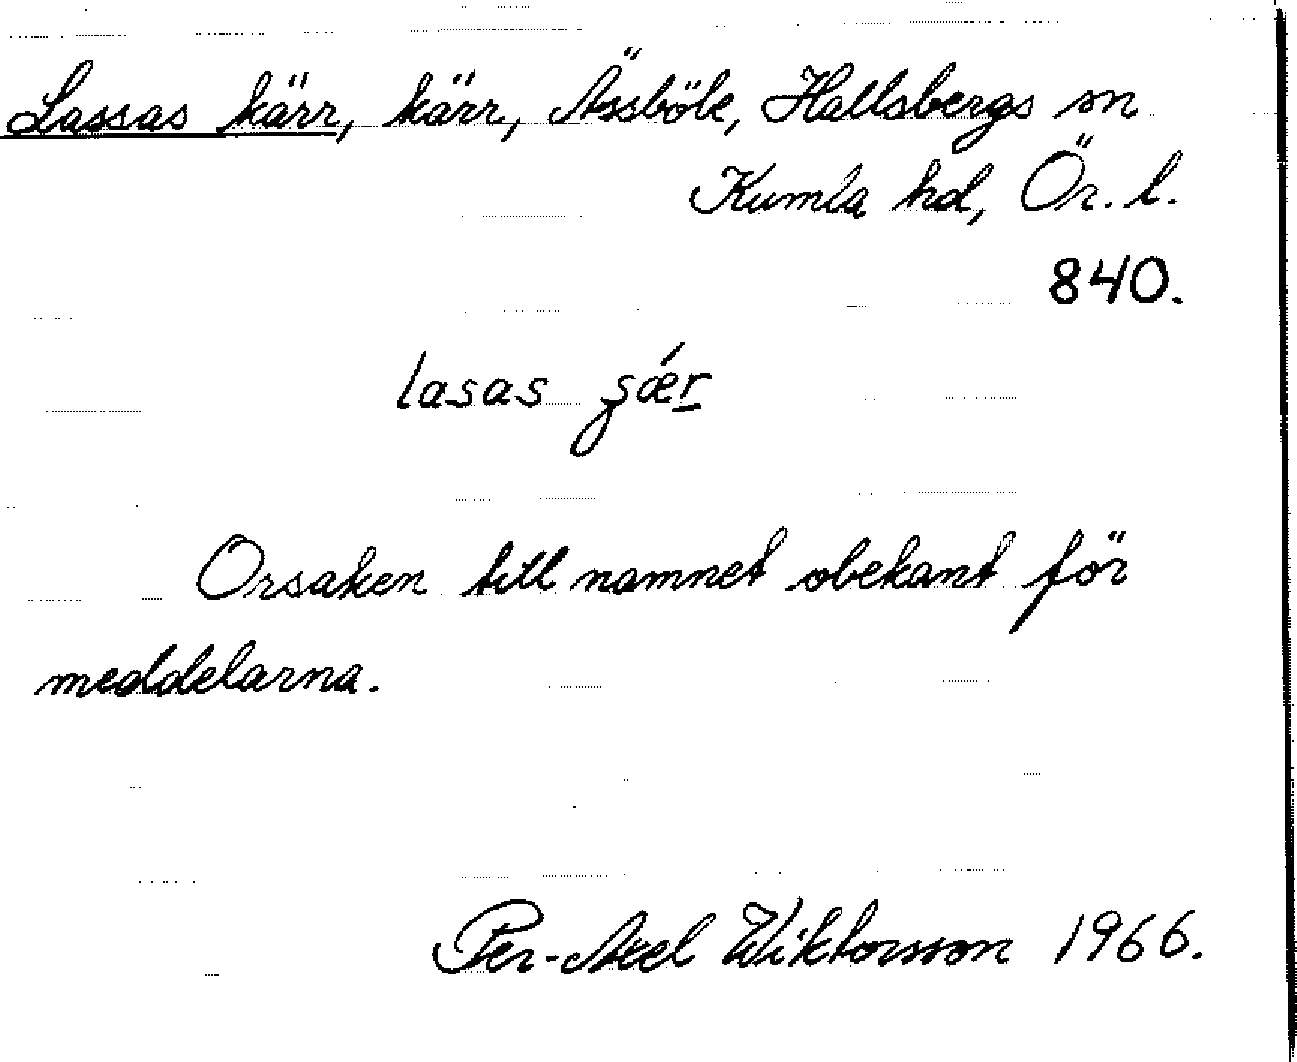 Lassas kärr, kärr, Ässböle, Hallsbergs sn
Kumla hd, Ör. l.
840.
lasas
Orsaken till namnet obekant för
meddelarna.
Per-Axel Wiktorsson 1966.